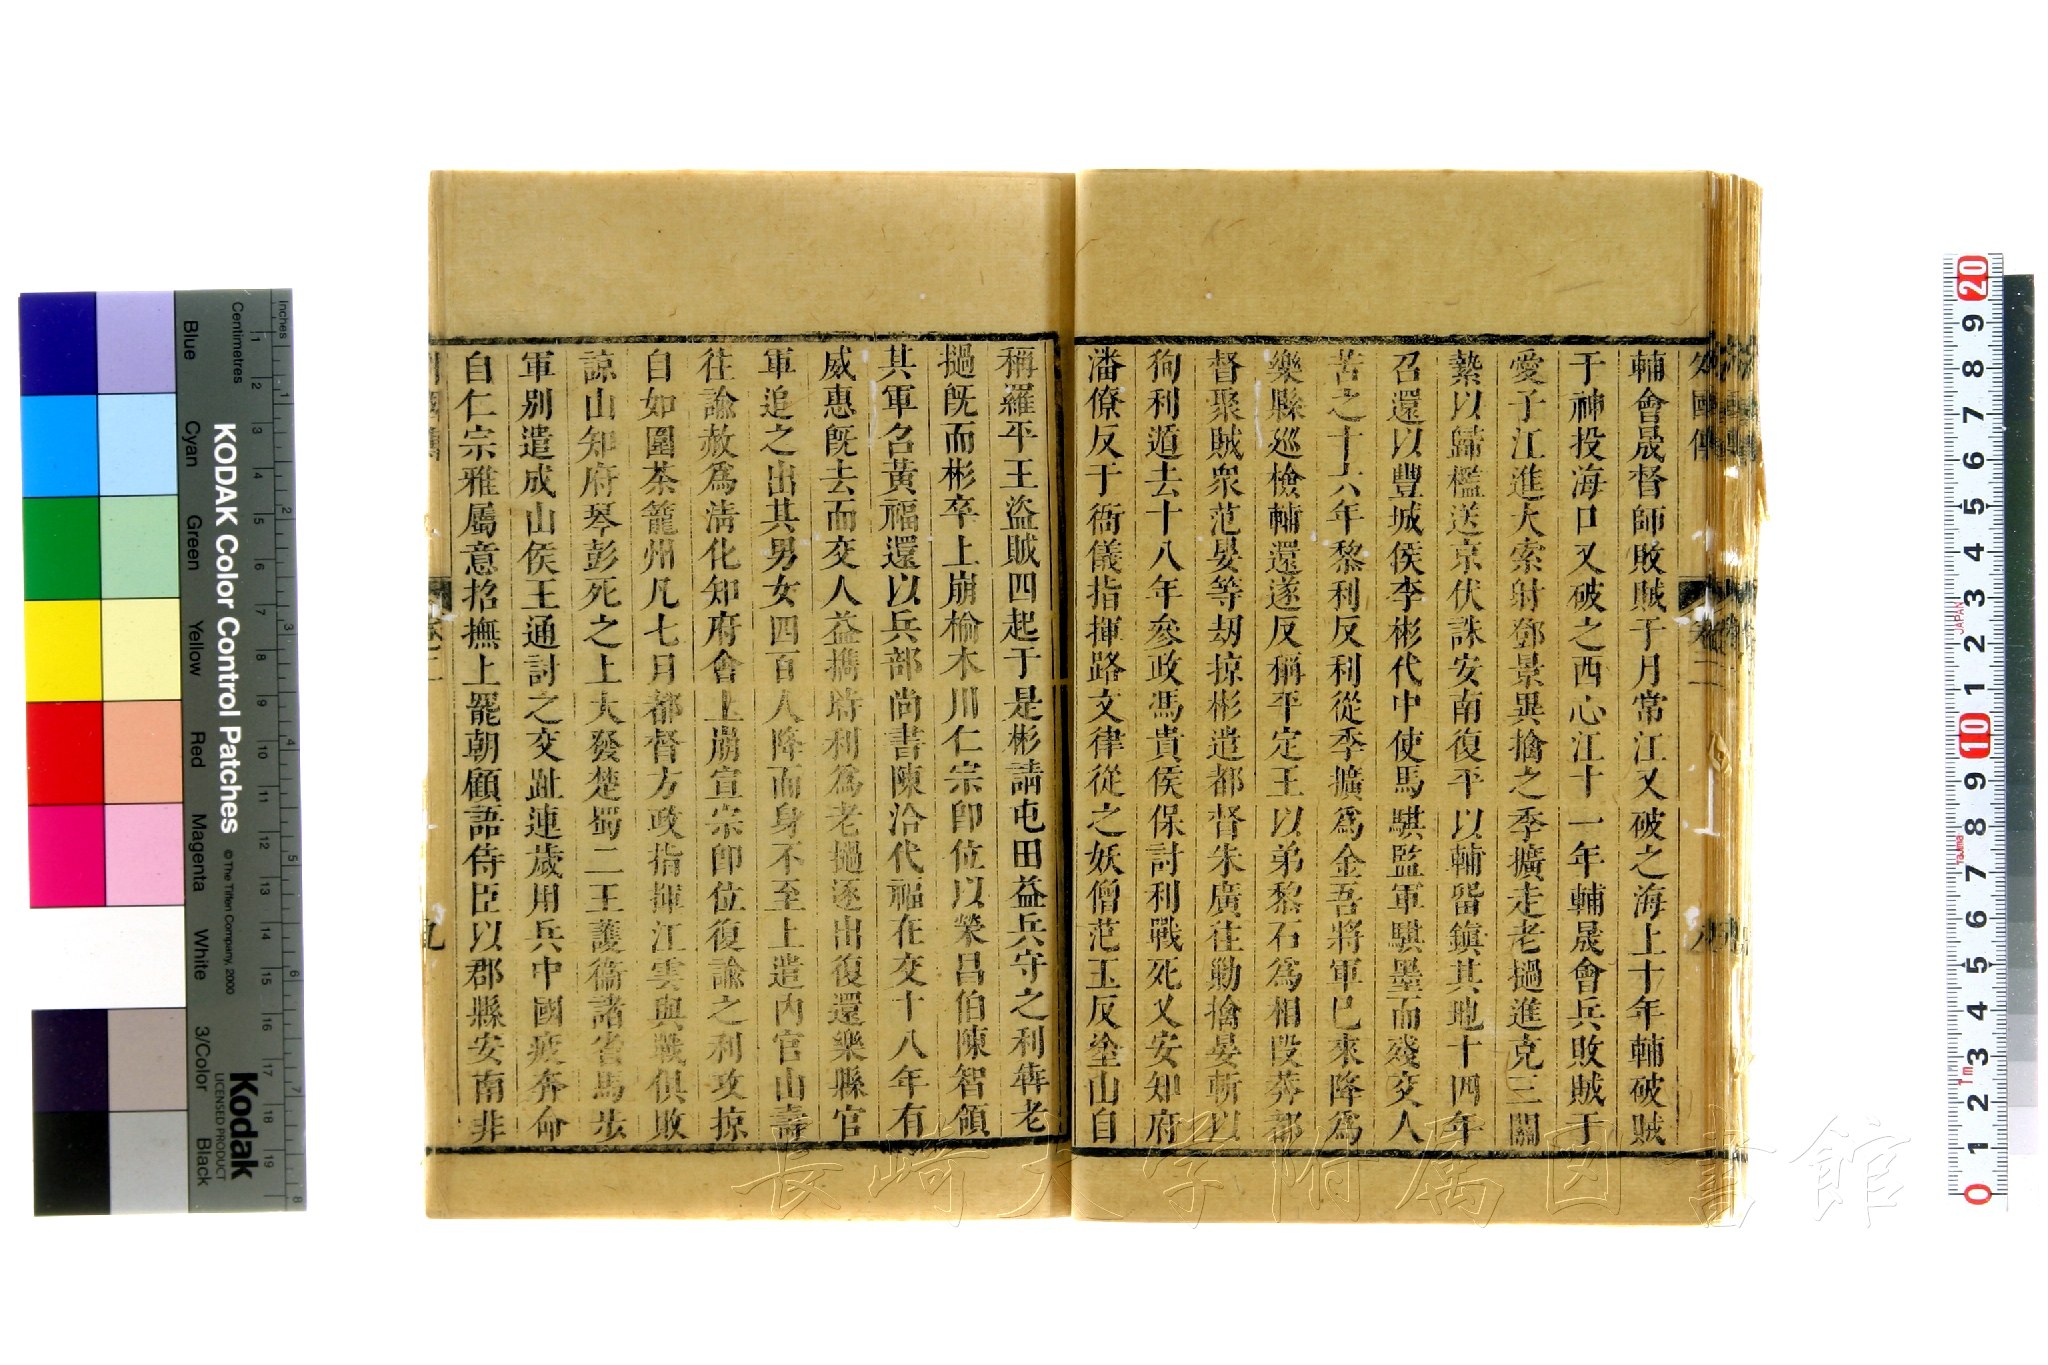 輔會晟督師敗賊于月常江又破之海上十年輔破賊
于神投海口又破之西心江十一年輔晟會兵敗賊于
愛子江進大索射鄧景異擒之季擴走老撾進克三關
縶以歸檻送京伏誅安南復平以輔畱鎮其地十四年
召還以豐城侯李彬代中使馬騏監軍騏墨而殘交人
苦之十六年黎利反利從季擴爲金吾將軍已來降爲
樂縣巡檢輔還遂反稱平定王以弟黎石爲相段莽都
督聚賊衆范晏等刼掠彬遣都督朱廣往勦擒晏斬以
狥利遁去十八年參政馮貴侯保討利戰死又安知府
潘僚反于衙儀指揮路文律從之妖僧范玉反塗山自
稱羅平王盜賊四起于是彬請屯田益兵守之利犇老
撾旣而彬卒上崩榆木川仁宗卽位以榮昌伯陳智領
其軍名黃福還以兵部尚書陳洽代福在交十八年有
威惠旣去而交人益携時利爲老撾逐出復還樂縣官
軍追之出其男女四百人降而身不至上遣内官山壽
往諭赦爲清化知府會上崩宣宗卽位復諭之利攻掠
自如圍茶籠州凡七月都督方政指揮江雲與戰俱敗
諒山知府琴彭死之上大發楚蜀二王護衞諸省馬步
軍别遣成山侯王通討之交趾連歲用兵中國疲奔命
自仁宗雅屬意招撫上罷朝顧語侍臣以郡縣安南非
卷二
九
KODAK Color Control Patches
© The Tiffen Company, 2000
Kodak
LICENSED PRODUCT
Inches
Centimetres
Blue
Cyan
Green
Yellow
Red
Magenta
White
3/Color
Black
JAPAN
Tajima
1m
長崎大学附属図書館